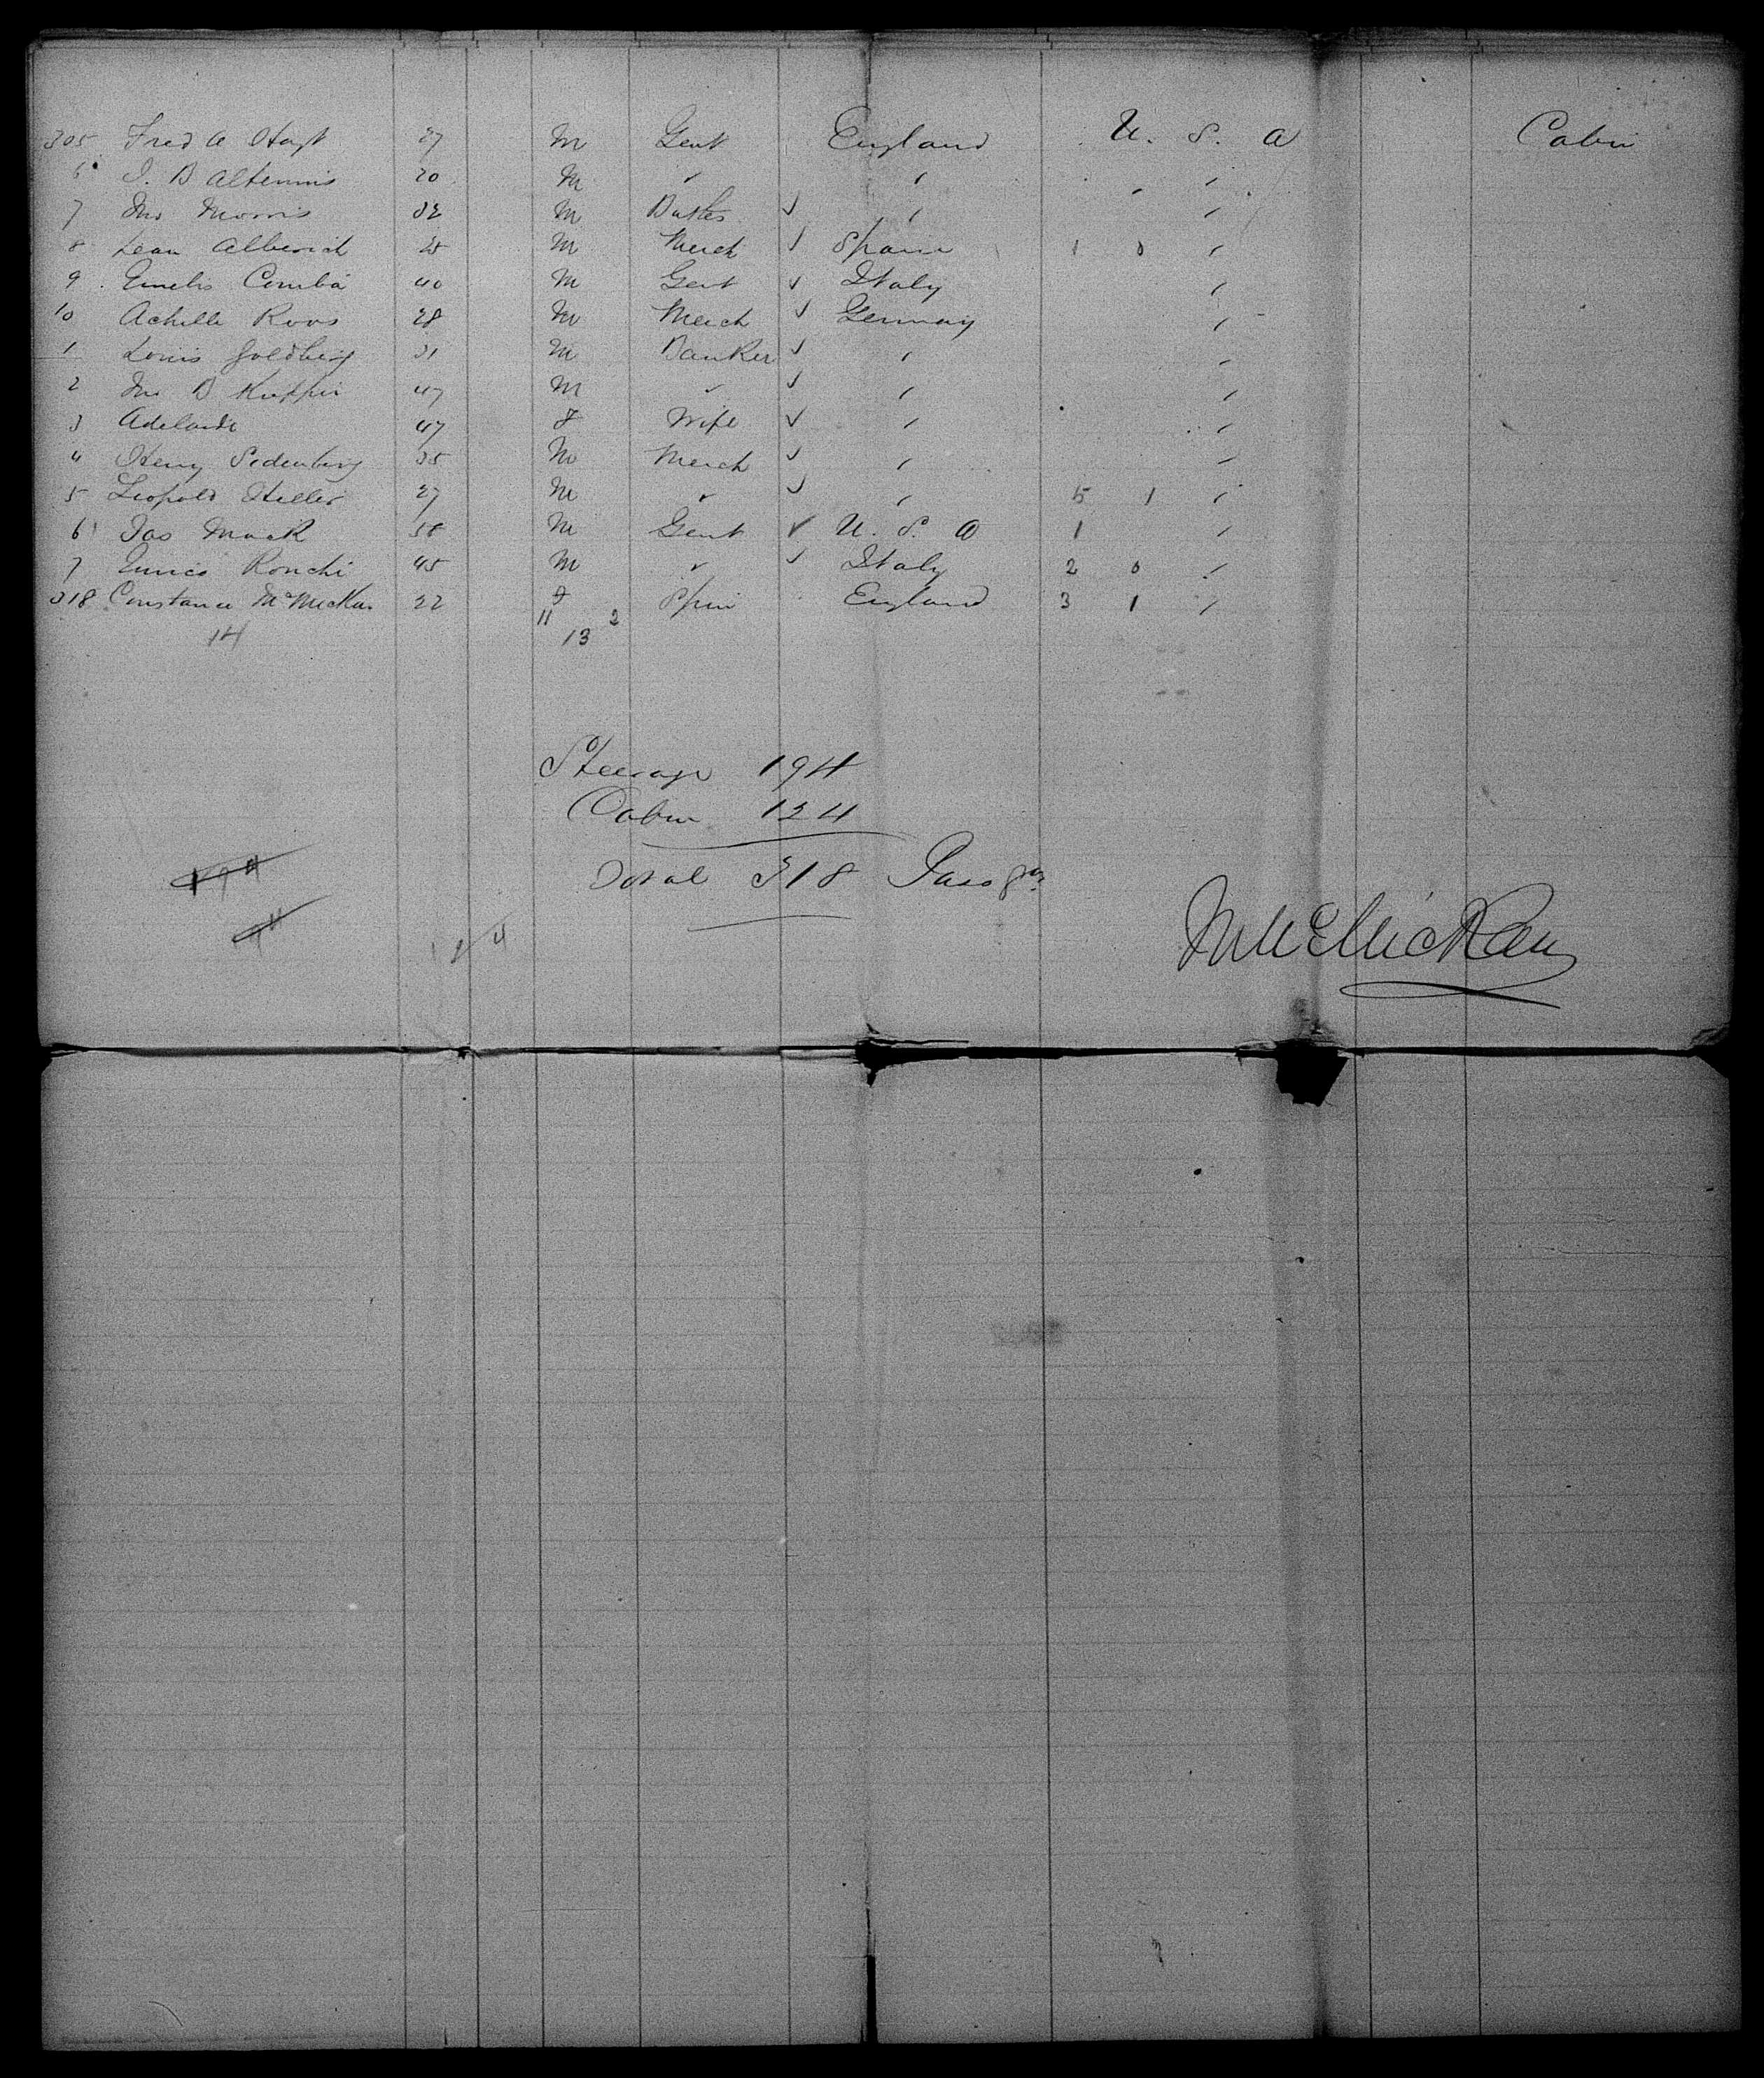 305 Fred A Hoyt 27 M Gent England U. S. A Cabin
6 J. B Altemus 20 M " " "
7 Jno Morris 32 M Butler ✓ " "
8 Lean Alberich 25 M Merch ✓ Spain 1 0 "
9 Emelio Comba 40 M Gent ✓ Italy "
10 Achille Roos 28 M Merch ✓ Germany "
1 Louis Goldberg 31 M Banker ✓ " "
2 Jno B 47 M " ✓ " "
3 Adelaide 47 F Wife ✓ " "
4 Henry Sedenberg 35 M Merch ✓ " "
5 Leopold Heller 27 M " ✓ " 5 1 "
6 Jas Mack M Gent ✓ U. S. A 1 "
7 Enrico Ronchi 45 M " ✓ Italy 2 0 "
318 Constance McMickan 22 F Spin England 3 1 "
14 11 2
13
Steerage 194
Cabin 124
Total 318 Passgrs
194
124
McMickan